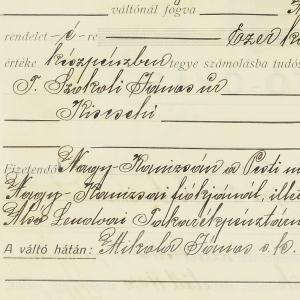 váltónál fogva
rendelet -é- re Ezer
értéke készpénzben tegye számolásba tudós
T. Szokoli János úr
Kiscseli
Fizetendő Nagy-Kanizsán a Pesti m
Nagy-Kanizsai fiókjánál, illet
Alsó Lendvai Takarékpénztárn
A váltó hátán: Mikola János s. k.